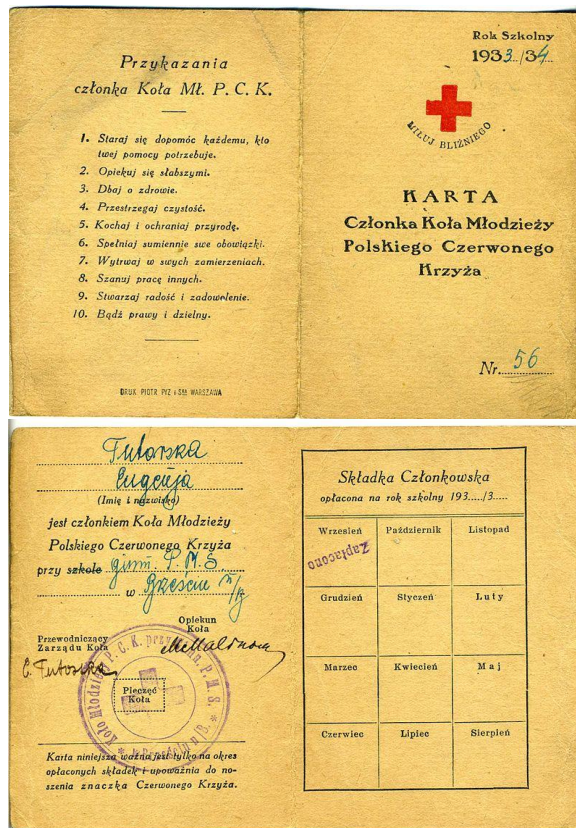 Przykazania
członka Koła Mł. P. C. K.
1. Staraj się dopomóc każdemu, kto
twej pomocy potrzebuje.
2. Opiekuj się słabszymi.
3. Dbaj o zdrowie.
4. Przestrzegaj czystość.
5. Kochaj i ochraniaj przyrodę.
6. Spełniaj sumiennie swe obowiązki.
7. Wytrwaj w swych zamierzeniach.
8. Szanuj pracę innych.
9. Stwarzaj radość i zadowolenie.
10. Bądź prawy i dzielny.
DRUK PIOTR PYZ i S-ka WARSZAWA
Rok Szkolny
1933/34
MIŁUJ BLIŹNIEGO
KARTA
Członka Koła Młodzieży
Polskiego Czerwonego
Krzyża
Nr. 56
Tutorska
Eugenja
(Imię i nazwisko)
jest członkiem Koła Młodzieży
Polskiego Czerwonego Krzyża
przy szkole gimn. P. M. S.
w Brześciu n/B
Opiekun
Koła
Przewodniczący
Zarządu Koła
E. Tutorska
Koło Młodzieży P. C. K. przy gimn. P. M. S.
w Brześciu n/B.
Pieczęć
Koła
Karta niniejsza ważna jest tylko na okres
opłaconych składek i upoważnia do no-
szenia znaczka Czerwonego Krzyża.
Składka Członkowska
opłacona na rok szkolny 193...../3.....
Wrzesień Październik Listopad
Zapłacono
Grudzień Styczeń Luty
Marzec Kwiecień Maj
Czerwiec Lipiec Sierpień